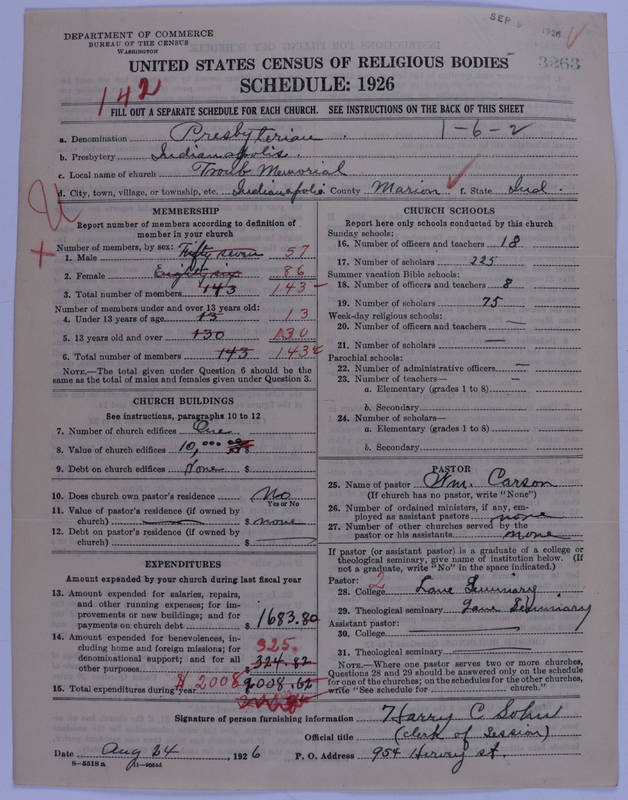 DEPARTMENT OF COMMERCE
BUREAU OF THE CENSUS
WASHINGTON
SEP 1926
3263
UNITED STATES CENSUS OF RELIGIOUS BODIES
SCHEDULE: 1926
142
FILL OUT A SEPARATE SCHEDULE FOR EACH CHURCH. SEE INSTRUCTIONS ON THE BACK OF THIS SHEET
a. Denomination Presbyterian 1-6-2
b. Presbytery Indianapolis.
c. Local name of church Troub Memorial
d. City, town, village, or township, etc. Indianapolis County Marion f. State Ind.
MEMBERSHIP
Report number of members according to definition of
member in your church
Number of members, by sex:
1. Male Fifty seven 57
2. Female Eighty six 86
3. Total number of members 143 143
Number of members under and over 13 years old:
4. Under 13 years of age 13 13
5. 13 years old and over 130 130
6. Total number of members 143 143
NOTE.—The total given under Question 6 should be the
same as the total of males and females given under Question 3.
CHURCH BUILDINGS
See instructions, paragraphs 10 to 12
7. Number of church edifices One
8. Value of church edifices 10,000 00 $
9. Debt on church edifices None $
10. Does church own pastor's residence No
Yes or No
11. Value of pastor's residence (if owned by
church) $ none
12. Debt on pastor's residence (if owned by
church) $
EXPENDITURES
Amount expended by your church during last fiscal year
13. Amount expended for salaries, repairs,
and other running expenses; for im-
provements or new buildings; and for
payments on church debt $ 1683.80
14. Amount expended for benevolences, in-
cluding home and foreign missions; for
denominational support; and for all
other purposes 325. 324.82
15. Total expenditures during year $ 2008 2008.62
CHURCH SCHOOLS
Report here only schools conducted by this church
Sunday schools:
16. Number of officers and teachers 18
17. Number of scholars 225
Summer vacation Bible schools:
18. Number of officers and teachers 8
19. Number of scholars 75
Week-day religious schools:
20. Number of officers and teachers —
21. Number of scholars —
Parochial schools:
22. Number of administrative officers —
23. Number of teachers— —
a. Elementary (grades 1 to 8)
b. Secondary
24. Number of scholars—
a. Elementary (grades 1 to 8)
b. Secondary
PASTOR
25. Name of pastor Wm. Carson
(If church has no pastor, write "None")
26. Number of ordained ministers, if any, em-
ployed as assistant pastors none
27. Number of other churches served by the
pastor or his assistants none
If pastor (or assistant pastor) is a graduate of a college or
theological seminary, give name of institution below. (If
not a graduate, write "No" in the space indicated.)
Pastor: 2
28. College Lane Seminary
29. Theological seminary Lane Seminary
Assistant pastor:
30. College
31. Theological seminary
NOTE.—Where one pastor serves two or more churches,
Questions 28 and 29 should be answered only on the schedule
for one of the churches; on the schedules for the other churches,
write "See schedule for church."
Signature of person furnishing information Harry C Sohn
Official title (Clerk of Session)
Date Aug 24 1926 P. O. Address 954 Hervey st.
8—5518a 11—9044d